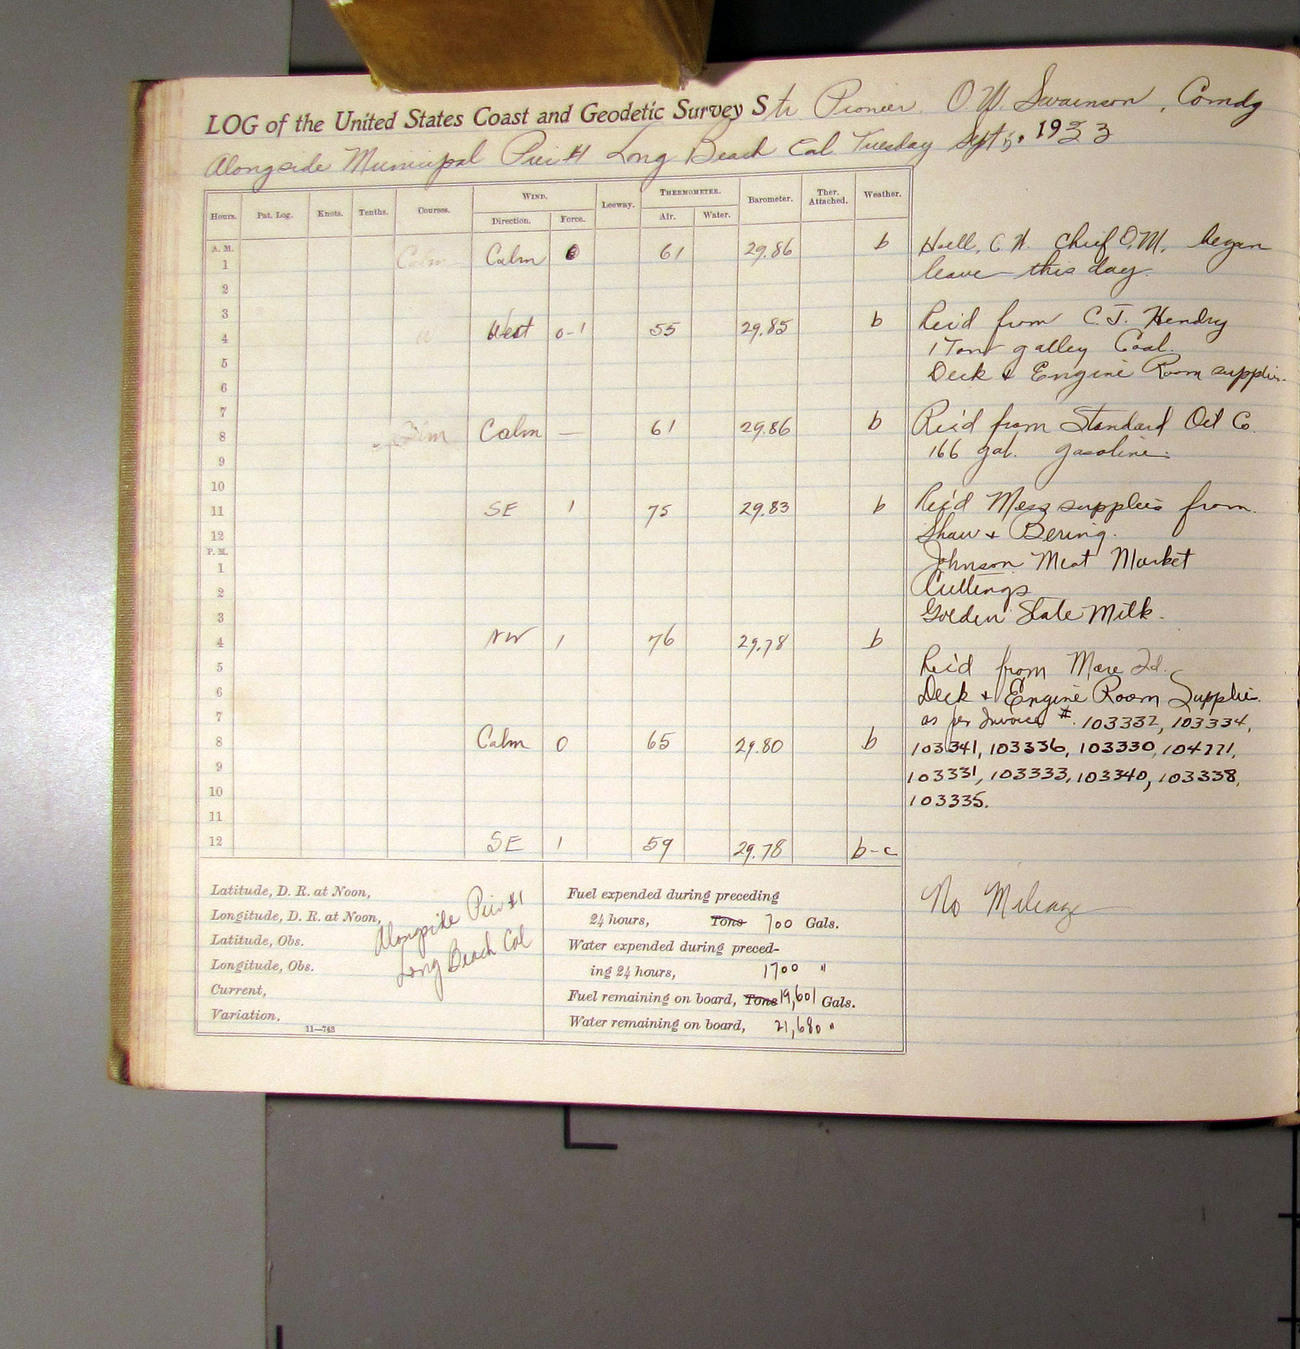 LOG of the United States Coast and Geodetic Survey Str Pioneer. O.W. Swainson, Comdg
Alongside Municipal Pier #1 Long Beach Cal. Tuesday Sept 5, 1933
Hours. Pat. Log. Knots. Tenths. Courses. WIND. Direction. Force. Leeway. THERMOMETER. Air. Water. Barometer. Ther. Attached. Weather.
A. M.
1 Calm 0 61 29.86 b
2
3
4 West 0-1 55 29.85 b
5
6
7
8 Calm — 61 29.86 b
9
10
11 SE 1 75 29.83 b
12
P. M.
1
2
3
4 NW 1 76 29.78 b
5
6
7
8 Calm 0 65 29.80 b
9
10
11
12 SE 1 59 29.78 b-c
C. H. Chief Q.M. began
leave this day.
Rec'd from C.J. Hendry
1 Ton galley Coal.
Deck & Engine Room supplies.
Rec'd from Standard Oil Co.
166 gal. gasoline.
Rec'd Mess supplies from
Shaw & Bering.
Johnson Meat Market
Cuttings
Golden State Milk.
Rec'd from Mare Id.
Deck & Engine Room Supplies
as per Invoice #. 103332, 103334,
103341, 103336, 103330, 104221,
103331, 103333, 103340, 103338,
103335.
No Mileage
Latitude, D. R. at Noon,
Longitude, D. R. at Noon,
Latitude, Obs.
Longitude, Obs.
Current,
Variation,
Alongside Pier #1
Long Beach Cal
11—743
Fuel expended during preceding
24 hours, Tons 700 Gals.
Water expended during preced-
ing 24 hours, 1700 "
Fuel remaining on board, Tons 19,601 Gals.
Water remaining on board, 21,680 "